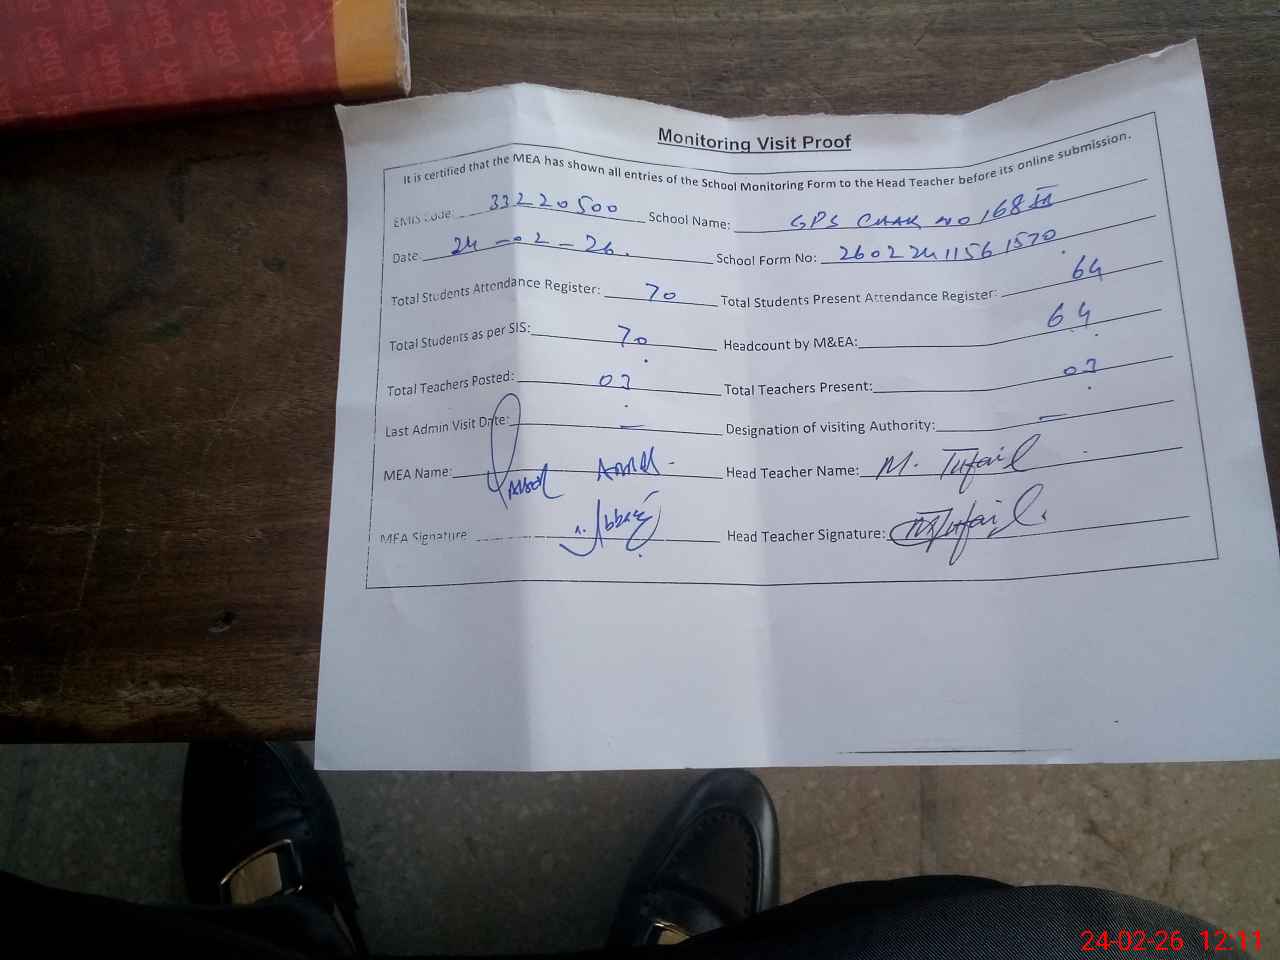 DIARY DIARY DIARY DIARY
Monitoring Visit Proof
It is certified that the MEA has shown all entries of the School Monitoring Form to the Head Teacher before its online submission.
EMIS Code: 33220500 School Name: GPS CHAK NO 168 II
Date: 24-02-26. School Form No: 2602241156 1570
Total Students Attendance Register: 70 Total Students Present Attendance Register: 64
Total Students as per SIS: 70 Headcount by M&EA: 64
Total Teachers Posted: 03 Total Teachers Present: 03
Last Admin Visit Date: — Designation of visiting Authority: —
MEA Name: Head Teacher Name: M. Tufail
MEA Signature Head Teacher Signature: M Tufail.
24-02-26 12:11